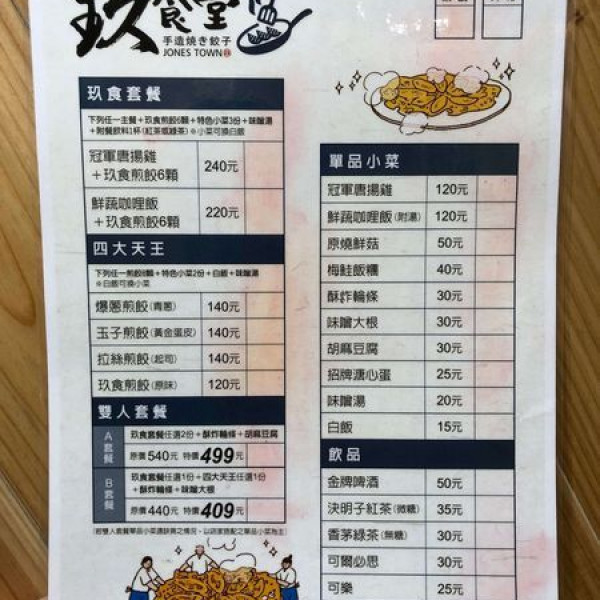 玖食堂
手造燒き餃子
JONES TOWN
玖食套餐
下列任一主餐+玖食煎餃6顆+特色小菜3份+味噌湯
+附餐飲料1杯(紅茶或綠茶)※小菜可換白飯
冠軍唐揚雞
+玖食煎餃6顆
240元
鮮蔬咖哩飯
+玖食煎餃6顆
220元
四大天王
下列任一煎餃8顆+特色小菜2份+白飯+味噌湯
※白飯可換小菜
爆蔥煎餃(青蔥) 140元
玉子煎餃(黃金蛋皮) 140元
拉絲煎餃(起司) 140元
玖食煎餃(原味) 120元
雙人套餐
A套餐
玖食套餐任選2份+酥炸輪條+胡麻豆腐
原價540元 特價499元
B套餐
玖食套餐任選1份+四大天王任選1份
+酥炸輪條+味噌大根
原價440元 特價409元
單品小菜
冠軍唐揚雞 120元
鮮蔬咖哩飯(附湯) 120元
原燒鮮菇 50元
梅鮭飯糰 40元
酥炸輪條 30元
味噌大根 30元
胡麻豆腐 30元
招牌溏心蛋 25元
味噌湯 20元
白飯 15元
飲品
金牌啤酒 50元
決明子紅茶(微糖) 35元
香茅綠茶(無糖) 30元
可爾必思 30元
可樂 25元